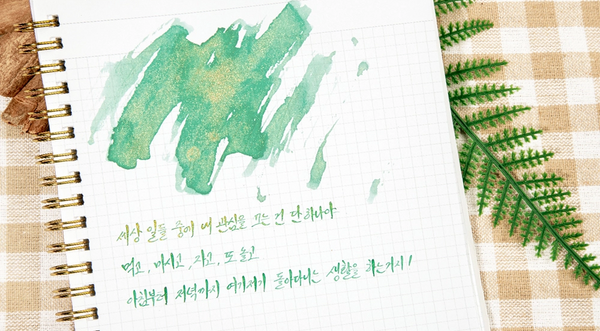 세상 일들 중에 내 관심을 끄는 건 단 하나야
먹고, 마시고, 자고, 또 놀고
아침부터 저녁까지 여기저기 돌아다니는 생활을 하는거지!